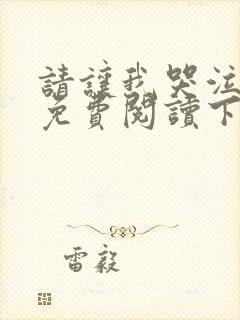 請讓我哭泣
免費閱讀下
雷毅